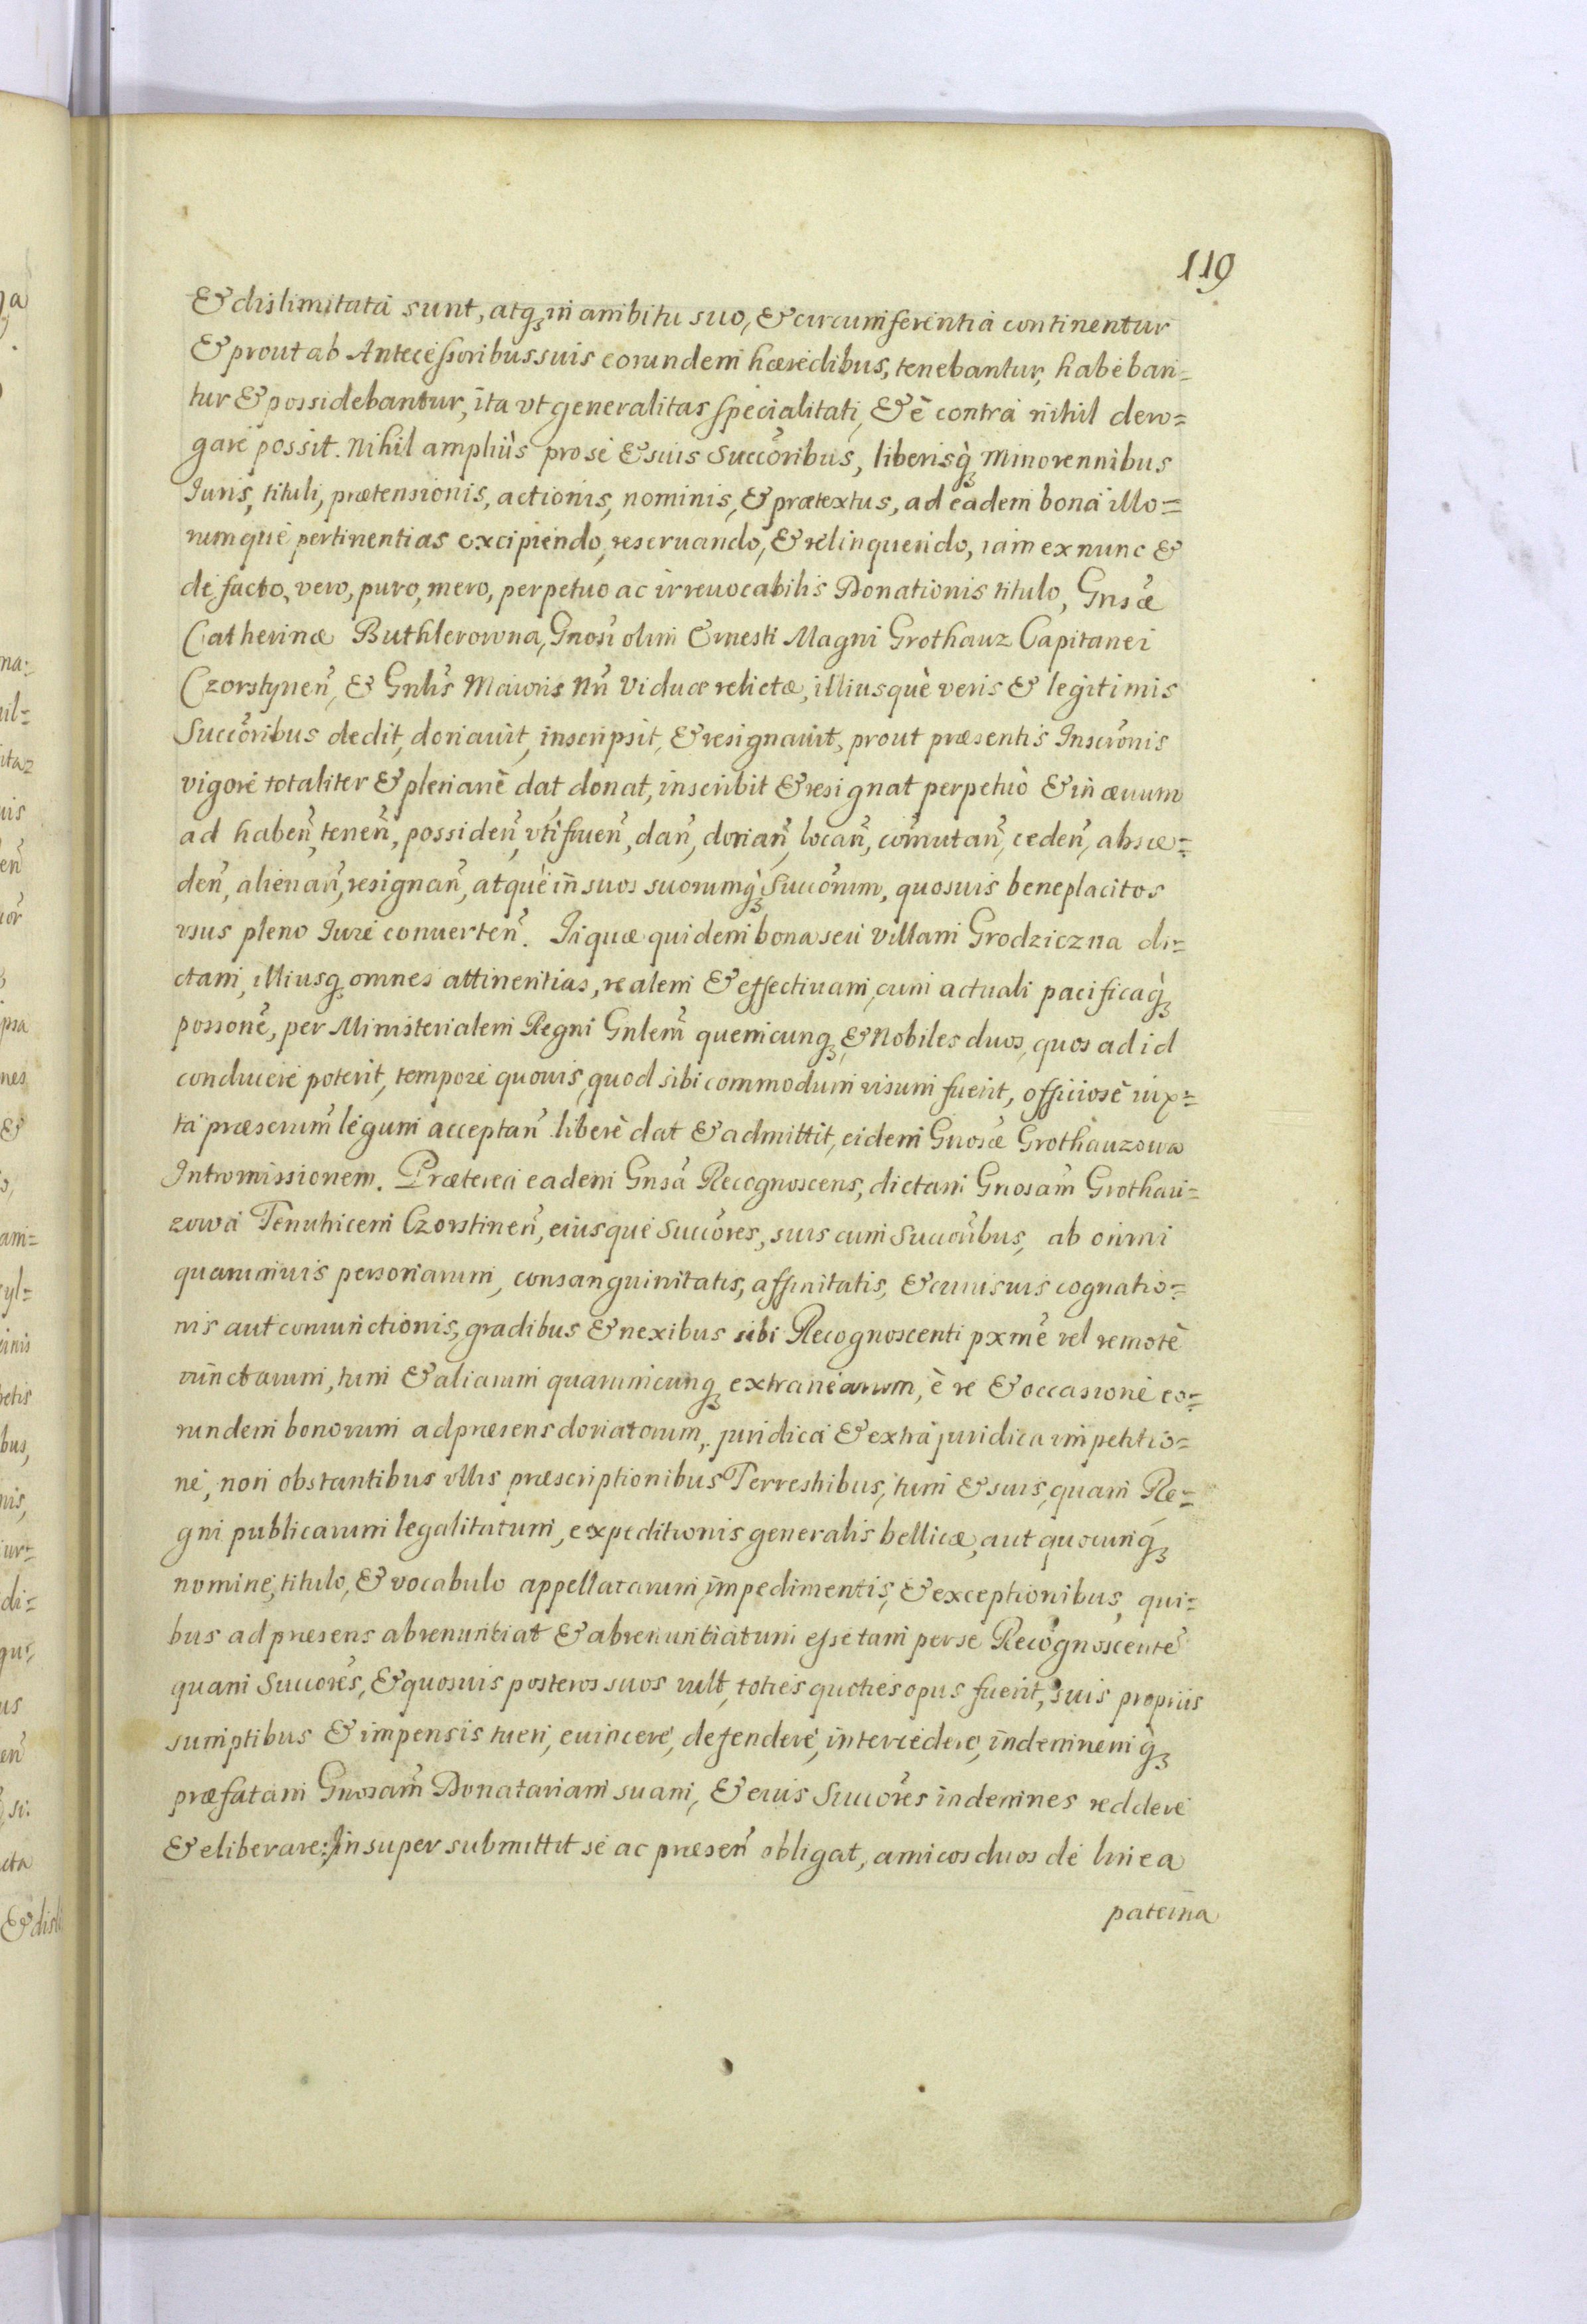 119
& dislimitata sunt, atq₃ in ambitu suo, & circumferentia continentur
& prout ab Antecessoribus suis eorundem hæredibus, tenebantur, habeban=
tur & possidebantur, ita vt generalitas specialitati, & è contra nihil dero=
gare possit. Nihil ampliùs pro se & suis Succõribus, liberisq₃ Minorennibus
Iuris, tituli, prætensionis, actionis, nominis, & prætextus, ad eadem bona illo=
rumque pertinentias excipiendo, reseruando, & relinquendo, iam ex nunc &
de facto, vero, puro, mero, perpetuo ac irreuocabilis Donationis titulo, Gnsæ
Catherinæ Buthlerowna, Gnosi olim Ernesti Magni Grothauz Capitanei
Czorstyneñ, & Gnlis Maioris Nñ Viduæ relictæ, illiusquè veris & legitimis
Succõribus dedit, donauit, inscripsit, & resignauit, prout præsentis Inscrõnis
vigore totaliter & plenariè dat donat, inscribit & resignat perpetuò & in æuum
ad habeñ, teneñ, possideñ, vti frueñ, dañ, donañ, locañ, cõmutañ, cedeñ, absce=
deñ, alienañ, resignañ, atquè in suos suorumq₃ Succõrum, quosuis beneplacitos
vsus pleno Iure conuerteñ. In quæ quidem bona seu Villam Grodziczna di=
ctam, illiusq₃ omnes attinentias, realem & effectiuam, cum actuali pacificaq₃
possonẽ, per Ministerialem Regni Gnlem̃ quemcunq₃, & Nobiles duos, quos ad id
conducere poterit, tempore quouis, quod sibi commodum visum fuerit, officiosè iux=
ta præscrum̃ legum acceptañ liberè dat & admittit, eidem Gnosæ Grothauzowa
Intromissionem. Præterea eadem Gnsa Recognoscens, dictam Gnosam̃ Grothau=
zowa Tenutricem Czorstineñ, eiusque Succõres, suis cum Succõribus, ab omni
quarumuis personarum, consanguinitatis, affinitatis, & cuiusuis cognatio=
nis aut coniunctionis, gradibus & nexibus sibi Recognoscenti pxmẽ vel remotè
iunctarum, tum & aliarum quarumcunq₃ extranearum, è re & occasione eo=
rundem bonorum ad præsens donatorum, juridica & extra juridica impetitio=
ne, non obstantibus vllis præscriptionibus Terrestribus, tum & suis, quam Re=
gni publicarum legalitatum, expeditionis generalis bellicæ, aut quocunq₃
nomine, titulo, & vocabulo appellatarum, impedimentis, & exceptionibus, qui=
bus ad præsens abrenuntiat & abrenuntiatum esse tam per se Recognoscentẽ
quam Succõres, & quosuis posteros suos vult, toties quoties opus fuerit, suis propriis
sumptibus & impensis tueri, euincere, defendere, intercedere, indemnemq₃
præfatam Gnosam̃ Donatariam suam, & eius Succõres indemnes reddere
& eliberare: Insuper submittit se ac præseñ obligat, amicos duos de linea
paterna